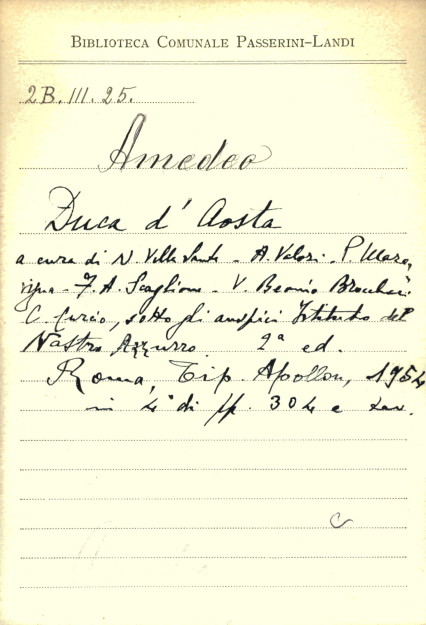 BIBLIOTECA COMUNALE PASSERINI-LANDI
2B.III.25.
Amedeo
Duca d'Aosta
a cura di N. Villa Santa - A. Valori - P. Mara-
vigna - F. A. Scaglione - V. Beonio Brocchieri
C. Curcio, sotto gli auspici Istituto del
Nastro Azzurro 2ª ed.
Roma, Tip. Apollon, 1954
in 4° di pp. 304 e tav.
C